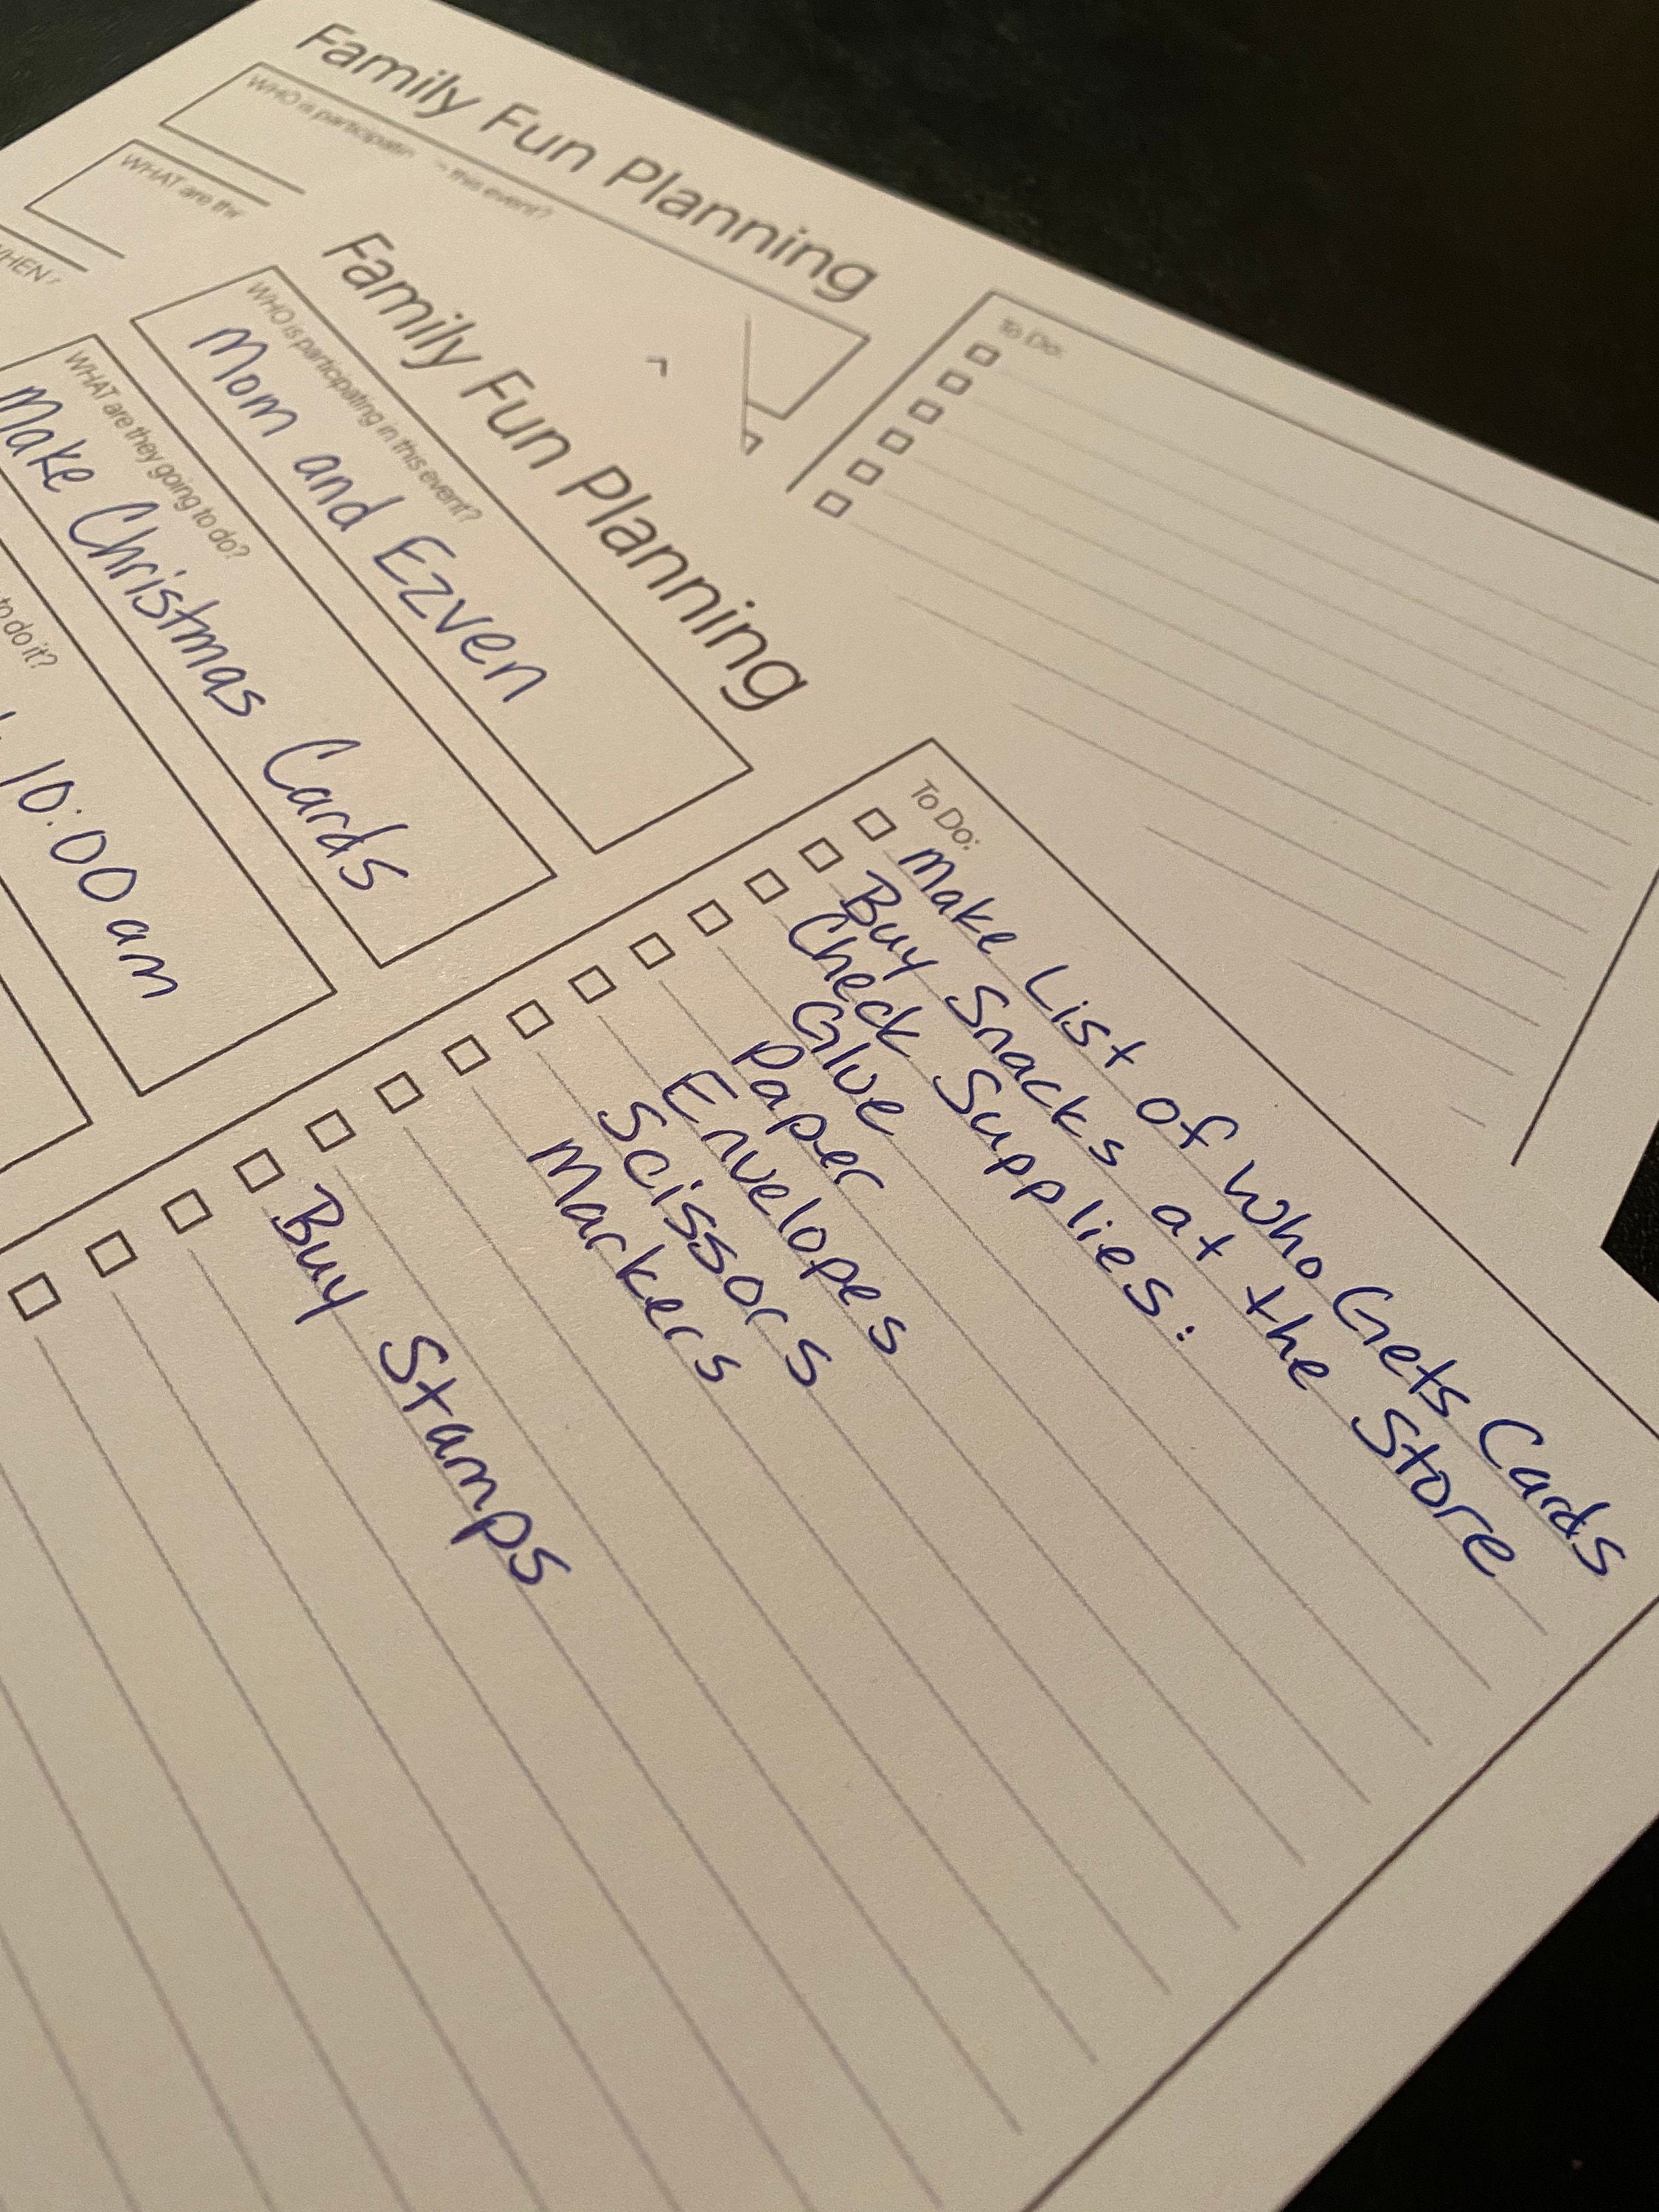 Family Fun Planning
WHO is participatin this event?
WHAT are
WHEN
To Do:
Family Fun Planning
WHO is participating in this event?
Mom and Ezven
WHAT are they going to do?
Make Christmas Cards
to do it?
10:00 am
To Do:
Make List of who Gets Cards
Buy Snacks at the Store
Check Supplies:
Glue
Paper
Envelopes
Scissors
Markers
Buy Stamps